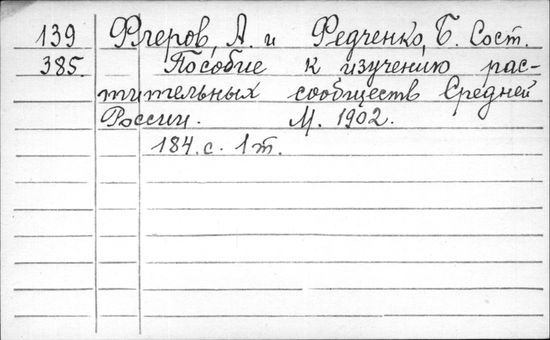 139 Флеров, А. и Федченко, Б. Сост.
385. Пособие к изучению рас-
тительных сообществ Средней
России. М. 1902.
184. с. 1 т.